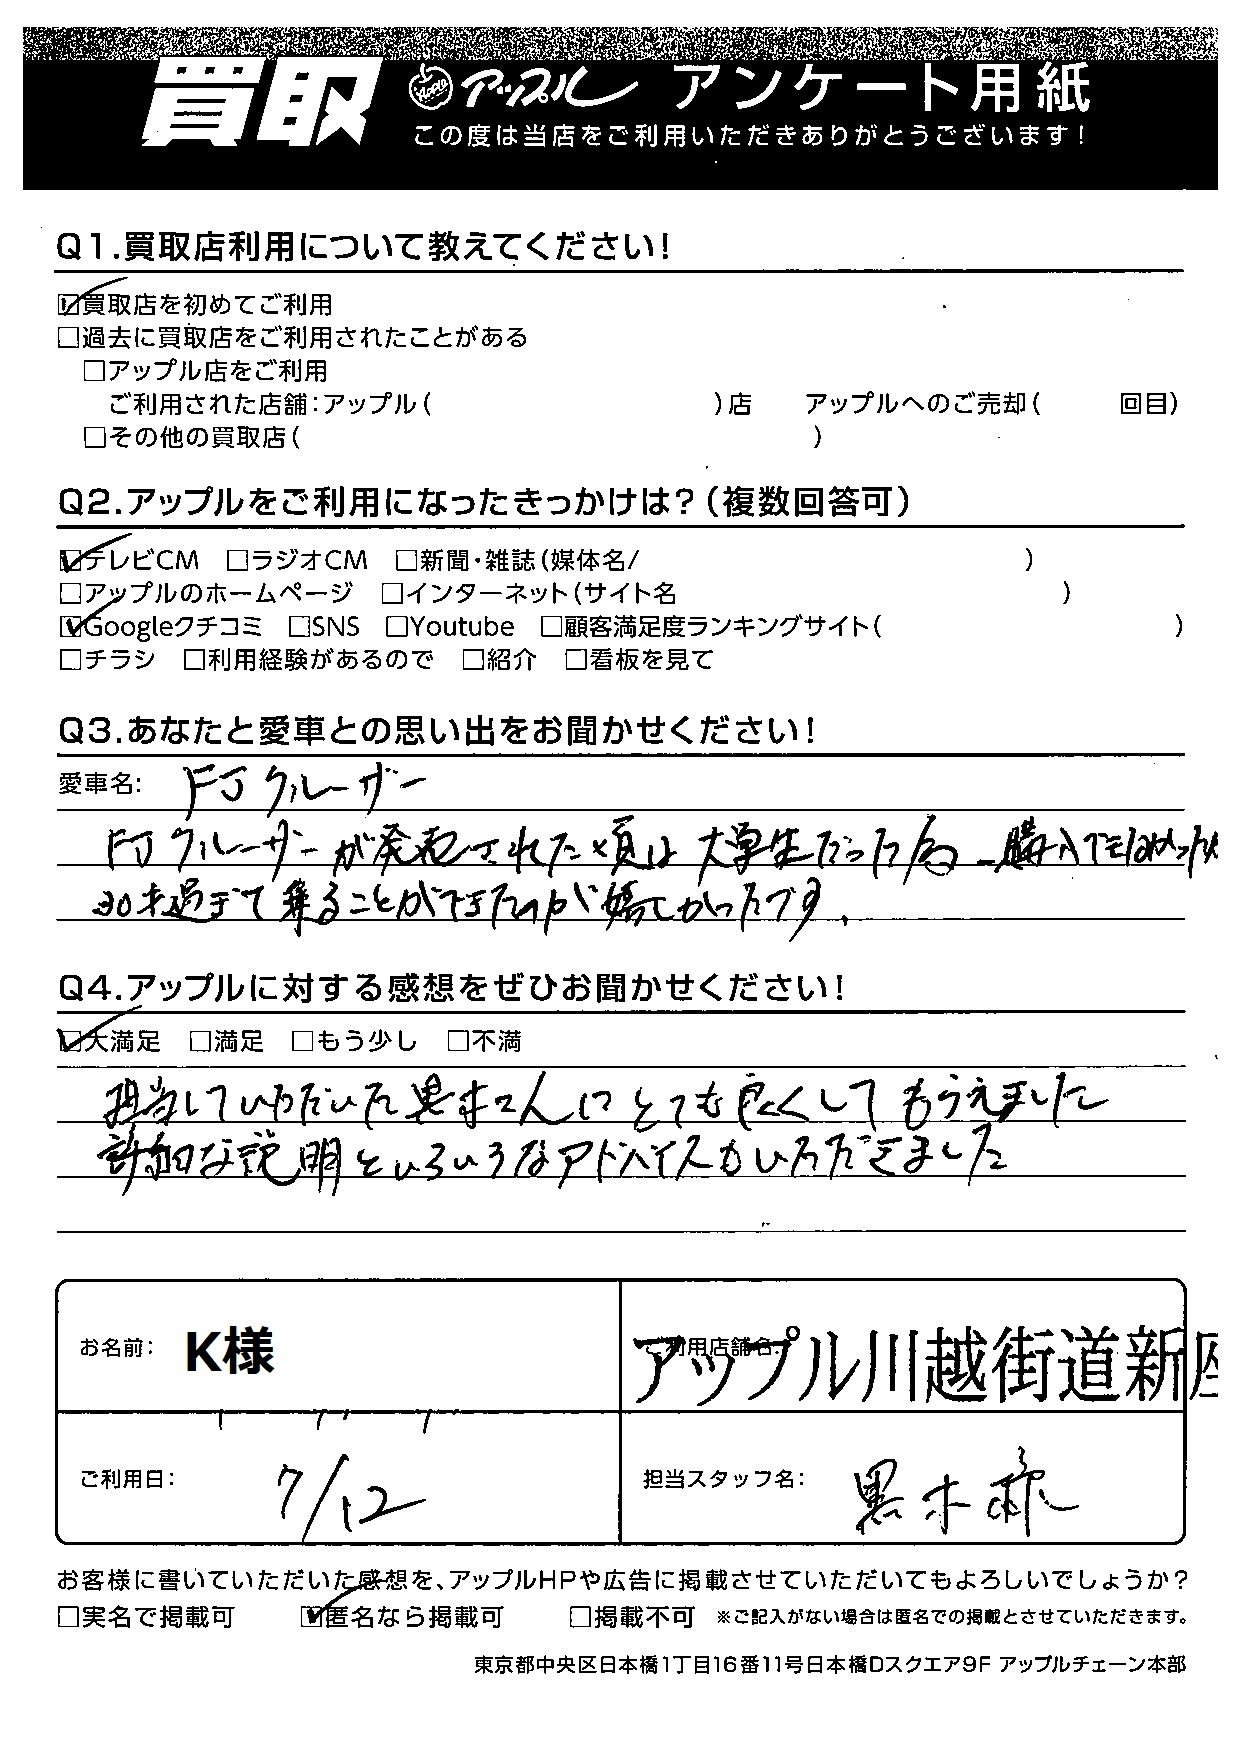 買取 Apple アップル アンケート用紙
この度は当店をご利用いただきありがとうございます!
Q1.買取店利用について教えてください!
☑買取店を初めてご利用
□過去に買取店をご利用されたことがある
□アップル店をご利用
ご利用された店舗:アップル( )店 アップルへのご売却( 回目)
□その他の買取店( )
Q2.アップルをご利用になったきっかけは?(複数回答可)
☑テレビCM □ラジオCM □新聞・雑誌(媒体名/ )
□アップルのホームページ □インターネット(サイト名 )
☑Googleクチコミ □SNS □Youtube □顧客満足度ランキングサイト( )
□チラシ □利用経験があるので □紹介 □看板を見て
Q3.あなたと愛車との思い出をお聞かせください!
愛車名: FJクルーザー
FJクルーザーが発表された頃は大学生だった為、購入できなかった
30才過ぎて乗ることができたのが嬉しかったです。
Q4.アップルに対する感想をぜひお聞かせください!
☑大満足 □満足 □もう少し □不満
担当していただいた黒木さんにとても良くしてもらえました
詳細な説明といろいろなアドバイスもいただきました
お名前: K様
ご利用店舗名: アップル川越街道新座
ご利用日: 7/12
担当スタッフ名: 黒木様
お客様に書いていただいた感想を、アップルHPや広告に掲載させていただいてもよろしいでしょうか?
□実名で掲載可 ☑匿名なら掲載可 □掲載不可 ※ご記入がない場合は匿名での掲載とさせていただきます。
東京都中央区日本橋1丁目16番11号日本橋Dスクエア9F アップルチェーン本部